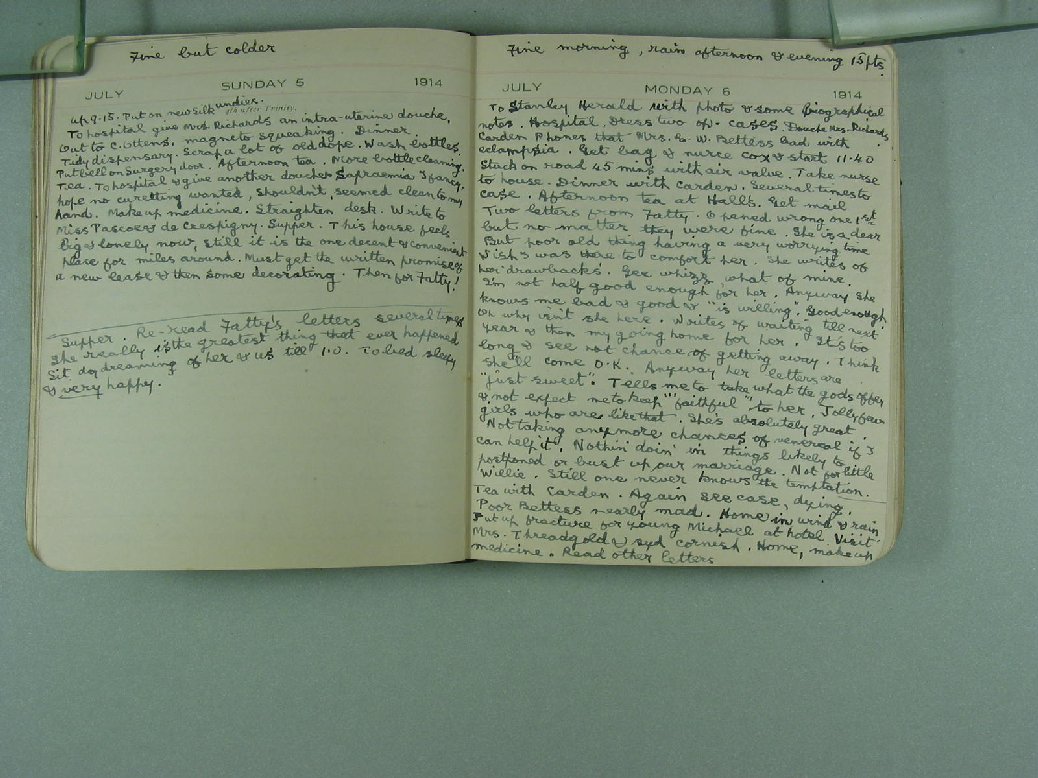 Fine but colder
JULY SUNDAY 5 1914
up 9.15. Put on new silk undies.
To hospital give Mrs Richards an intra-uterine douche.
Out to C. Ottens, magneto squeaking. Dinner.
Tidy dispensary. Scrap a lot of old dope. Wash bottles,
Put bell on surgery door. Afternoon tea. More bottle cleaning.
Tea. To hospital & give another douche. Sapraemia I fancy,
hope no curetting wanted, shouldn't, seemed clean to my
hand. Make up medicine. Straighten desk. Write to
Miss Pascoe & de Crespigny. Supper. This house feels
big & lonely now, still it is the one decent & convenient
place for miles around. Must get the written promise of
a new lease & then some decorating. Then for Fatty!
Supper. Re-read Fatty's letters several times
She really is the greatest thing that ever happened.
Sit day dreaming of her & us till 1.0. To bed sleepy
& very happy.
Fine morning, rain afternoon & evening 15 pts.
JULY MONDAY 6 1914
To Stanley Herald with photo & some biographical
notes. Hospital, Dress two op. cases Douche Mrs. Richards
Carden Phones that Mrs. G. W. Bettess bad with
eclampsia. Get bag & nurse Cox & start 11.40
Stuck on road 45 mins with air valve. Take nurse
to house. Dinner with Carden. Several times to
case. Afternoon tea at Halls. Get mail
Two letters from Fatty. Opened wrong one 1st
but no matter they were fine. She is a dear
But poor old thing having a very worrying time
Wish I was there to comfort her. She writes of
her drawbacks. Gee whizz, what of mine.
I'm not half good enough for her. Anyway she
knows me bad & good & "is willing". Good enough.
Oh why isn't she here. Writes of waiting till next
year & then my going home for her. It's too
long & see not chance of getting away. Think
she'll come O.K. Anyway her letters are
"just sweet". Tells me to take what the gods offer
& not expect me to keep "faithful" to her. Jolly few
girls who are like that. She's absolutely great
Not taking any more chances of venereal if I
can help it. Nothin' doin' in things likely to
postponed or bust up our marriage. Not for little
Willie. Still one never knows the temptation.
Tea with Carden. Again see case, dying.
Poor Bettess nearly mad. Home in wind & rain
Put up fracture for young Michael at hotel. Visit
Mrs. Threadgold & Syd Cornish. Home, make up
medicine. Read other letters